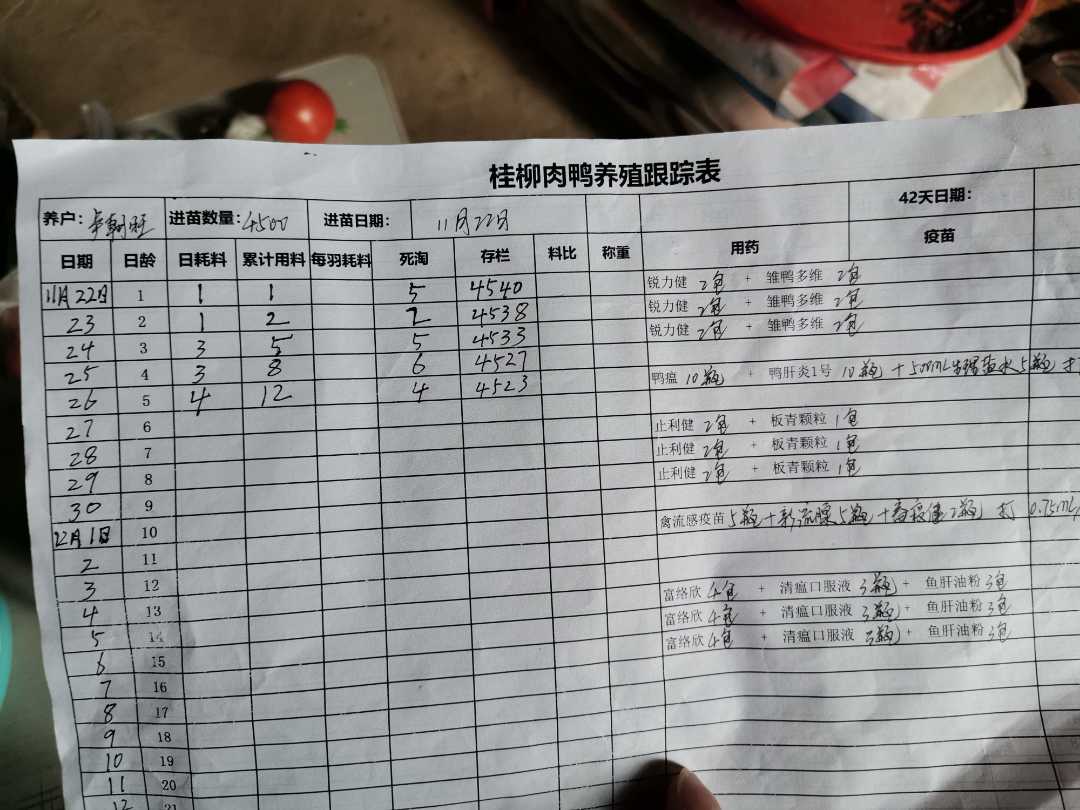 桂柳肉鸭养殖跟踪表
养户： 进苗数量：4500 进苗日期： 11月22日 42天日期：
日期 日龄 日耗料 累计用料 每羽耗料 死淘 存栏 料比 称重 用药 疫苗
11月22日 1 1 1 5 4540 锐力健 2包 + 雏鸭多维 2包
23 2 1 2 2 4538 锐力健 2包 + 雏鸭多维 2包
24 3 3 5 5 4533 锐力健 2包 + 雏鸭多维 2包
25 4 3 8 6 4527
26 5 4 12 4 4523 鸭瘟 10瓶 + 鸭肝炎1号 10瓶 + 500mL生理盐水5瓶 打
27 6
28 7 止利健 2包 + 板青颗粒 1包
29 8 止利健 2包 + 板青颗粒 1包
30 9 止利健 2包 + 板青颗粒 1包
12月1日 10
2 11 禽流感疫苗 5瓶 + 5瓶 + 2瓶 打 0.75mL
3 12
4 13
5 14 富络欣 4包 + 清瘟口服液 3瓶 + 鱼肝油粉 3包
6 15 富络欣 4包 + 清瘟口服液 3瓶 + 鱼肝油粉 3包
7 16 富络欣 4包 + 清瘟口服液 3瓶 + 鱼肝油粉 3包
8 17
9 18
10 19
11 20
12 21